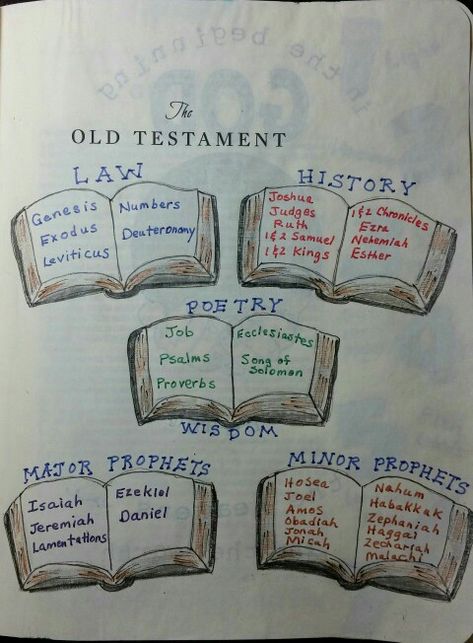 The
OLD TESTAMENT
LAW
Genesis
Exodus
Leviticus
Numbers
Deuteronomy
HISTORY
Joshua
Judges
Ruth
1&2 Samuel
1&2 Kings
1&2 Chronicles
Ezra
Nehemiah
Esther
POETRY
Job
Psalms
Proverbs
Ecclesiastes
Song of
Solomon
WISDOM
MAJOR PROPHETS
Isaiah
Jeremiah
Lamentations
Ezekiel
Daniel
MINOR PROPHETS
Hosea
Joel
Amos
Obadiah
Jonah
Micah
Nahum
Habakkak
Zephaniah
Haggai
Zechariah
Malachi